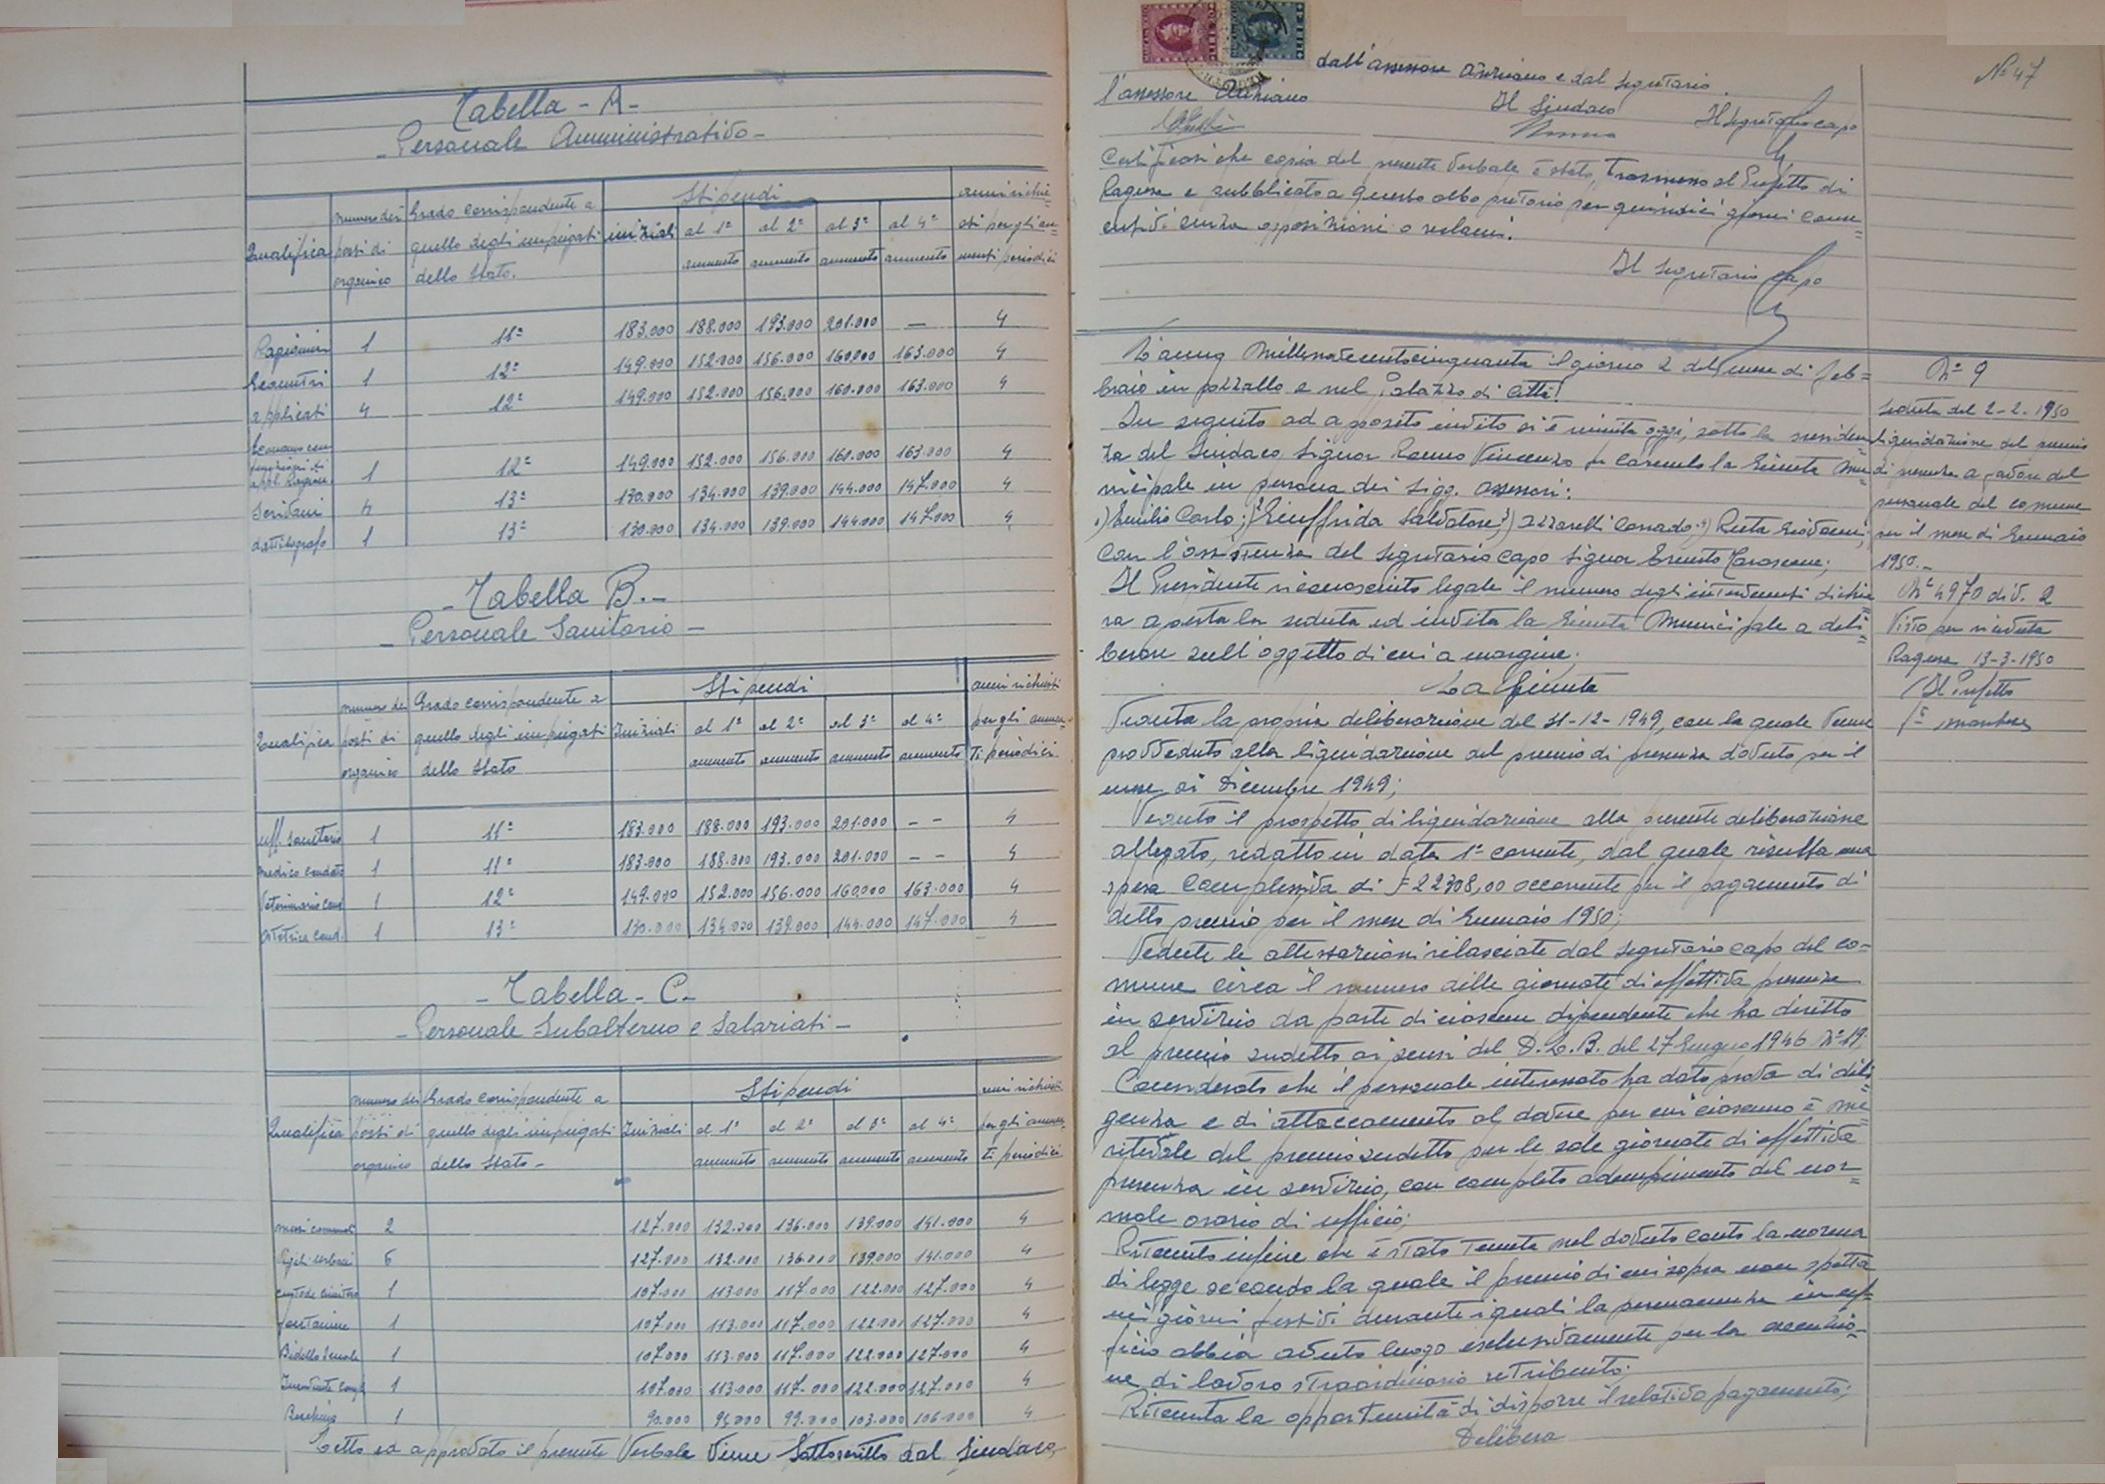 Tabella - A -
- Personale Amministrativo -
Qualifica
numero dei
posti di
organico
Grado corrispondente a
quello degli impiegati
dello Stato.
Stipendi
iniziali
al 1° aumento
al 2° aumento
al 3° aumento
al 4° aumento
anni richie=
sti per gli au=
menti periodici
Ragioniere 1 11° 183.000 188.000 193.000 201.000 — 4
1 12° 149.000 152.000 156.000 160.000 163.000 4
applicati 4 12° 149.000 152.000 156.000 160.000 163.000 4
Economo con
funzioni di
appl. Ragion. 1 12° 149.000 152.000 156.000 160.000 163.000 4
Scrivani 4 13° 130.000 134.000 139.000 144.000 147.000 4
dattilografo 1 13° 130.000 134.000 139.000 144.000 147.000 4
- Tabella B. -
- Personale Sanitario -
Qualifica
numero dei
posti di
organico
Grado corrispondente a
quello degli impiegati
dello Stato
Stipendi
Iniziali
al 1° aumento
al 2° aumento
al 3° aumento
al 4° aumento
anni richiesti
per gli aumen-
ti periodici
uff. Sanitario 1 11° 183.000 188.000 193.000 201.000 - - 4
medico condotto 1 11° 183.000 188.000 193.000 201.000 - - 4
Veterinario cond. 1 12° 149.000 152.000 156.000 160,000 163.000 4
Ostetrica cond. 1 13° 130.000 134.000 139.000 144.000 147.000 4
- Tabella - C. -
- Personale Subalterno e Salariati -
Qualifica
numero dei
posti di
organico
Grado corrispondente a
quello degli impiegati
dello Stato -
Stipendi
Iniziali
al 1° aumento
al 2° aumento
al 3° aumento
al 4° aumento
anni richiesti
per gli aumen-
ti periodici
messi comunali 2 127.000 132.000 136.000 139.000 141.000 4
Vigili urbani 6 127.000 132.000 136.000 139.000 141.000 4
custode cimitero 1 107.000 113.000 117.000 122.000 127.000 4
fontaniere 1 107.000 113.000 117.000 122.000 127.000 4
Bidello Scuole 1 107.000 113.000 117.000 122.000 127.000 4
1 107.000 113.000 117.000 122.000 127.000 4
Becchino 1 90.000 95.000 99.000 103.000 106.000 4
Letto ed approvato il presente Verbale Viene Sottoscritto dal Sindaco,
N° 47
dall'assessore Anziano e dal Segretario.
l'assessore Anziano
Il Sindaco
Il Segretario capo
Certificasi che copia del presente Verbale è stata, Trasmessa al Prefetto di
Ragusa e pubblicata a questo albo pretorio per quindici giorni conse=
cutivi senza opposizioni o reclami.
Il Segretario Capo
L'anno Millenovecentocinquanta il giorno 2 del mese di feb=
braio in pozzallo e nel Palazzo di Città!
In seguito ad apposito invito si è riunita oggi, sotto la presiden
za del Sindaco Signor Romeo Vincenzo fu Carmelo la Giunta Mu=
nicipale in persona dei Sigg. assessori:
1) Emilio Carlo; 2) Giuffrida Salvatore; 3) Azzarelli Corrado; 4) Rosta Giovanni;
con l'assistenza del Segretario capo Signor Ernesto
Il Presidente riconosciuto legale il numero degli intervenuti dichia
ra aperta la seduta ed invita la Giunta Municipale a deli=
berare sull'oggetto di cui a margine;
La Giunta
Veduta la propria deliberazione del 31-12-1949, con la quale Venne
provveduto alla liquidazione del premio di presenza dovuto per il
mese di Dicembre 1949;
Veduto il prospetto di liquidazione alla presente deliberazione
allegato, redatto in data 1° corrente, dal quale risulta una
spesa complessiva di £ 22308,00 occorrente per il pagamento di
detto premio per il mese di Gennaio 1950;
Vedute le attestazioni rilasciate dal Segretario capo del co=
mune circa il numero delle giornate di effettiva presenza
in servizio da parte di ciascun dipendente che ha diritto
al premio sudetto ai sensi del D.L.P. del 27 Giugno 1946 N° 19;
Considerato che il personale interessato ha dato prova di dili=
genza e di attaccamento al dovere per cui ciascuno è me=
ritevole del premio sudetto per le sole giornate di effettiva
presenza in servizio, con completo adempimento del nor=
male orario di ufficio;
Ritenuto infine che è stato Tenuta nel dovuto conto la norma
di legge secondo la quale il premio di cui sopra non spetta
nei giorni festivi durante i quali la permanenza in uf=
ficio abbia avuto luogo esclusivamente per la esecuzio-
ne di lavoro straordinario retribuito;
Ritenuta la opportunità di disporre il relativo pagamento;
Delibera
N° 9
Seduta del 2-2-1950
liquidazione del premio
di presenza a favore del
personale del comune
per il mese di Gennaio
1950.-
N° 4970 div. 2
Visto per ricevuta
Ragusa 13-3-1950
Il Prefetto